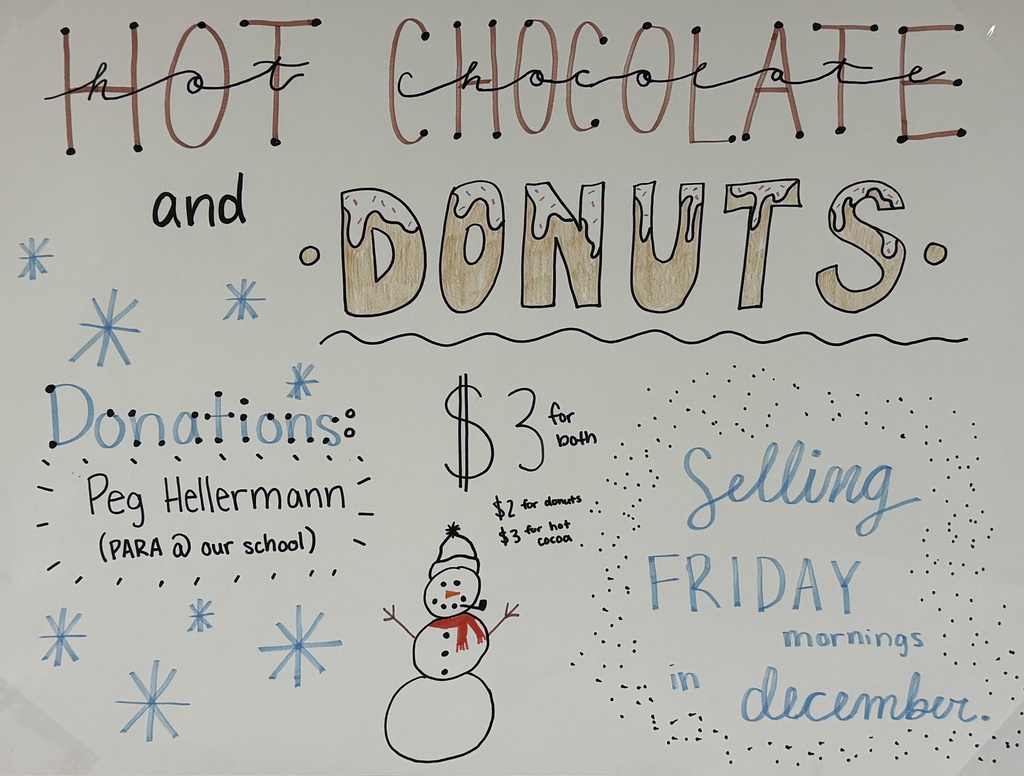 HOT CHOCOLATE
hot chocolate
and DONUTS
Donations:
Peg Hellermann
(PARA @ our school)
$3 for both
$2 for donuts
$3 for hot cocoa
Selling
FRIDAY
mornings
in december.